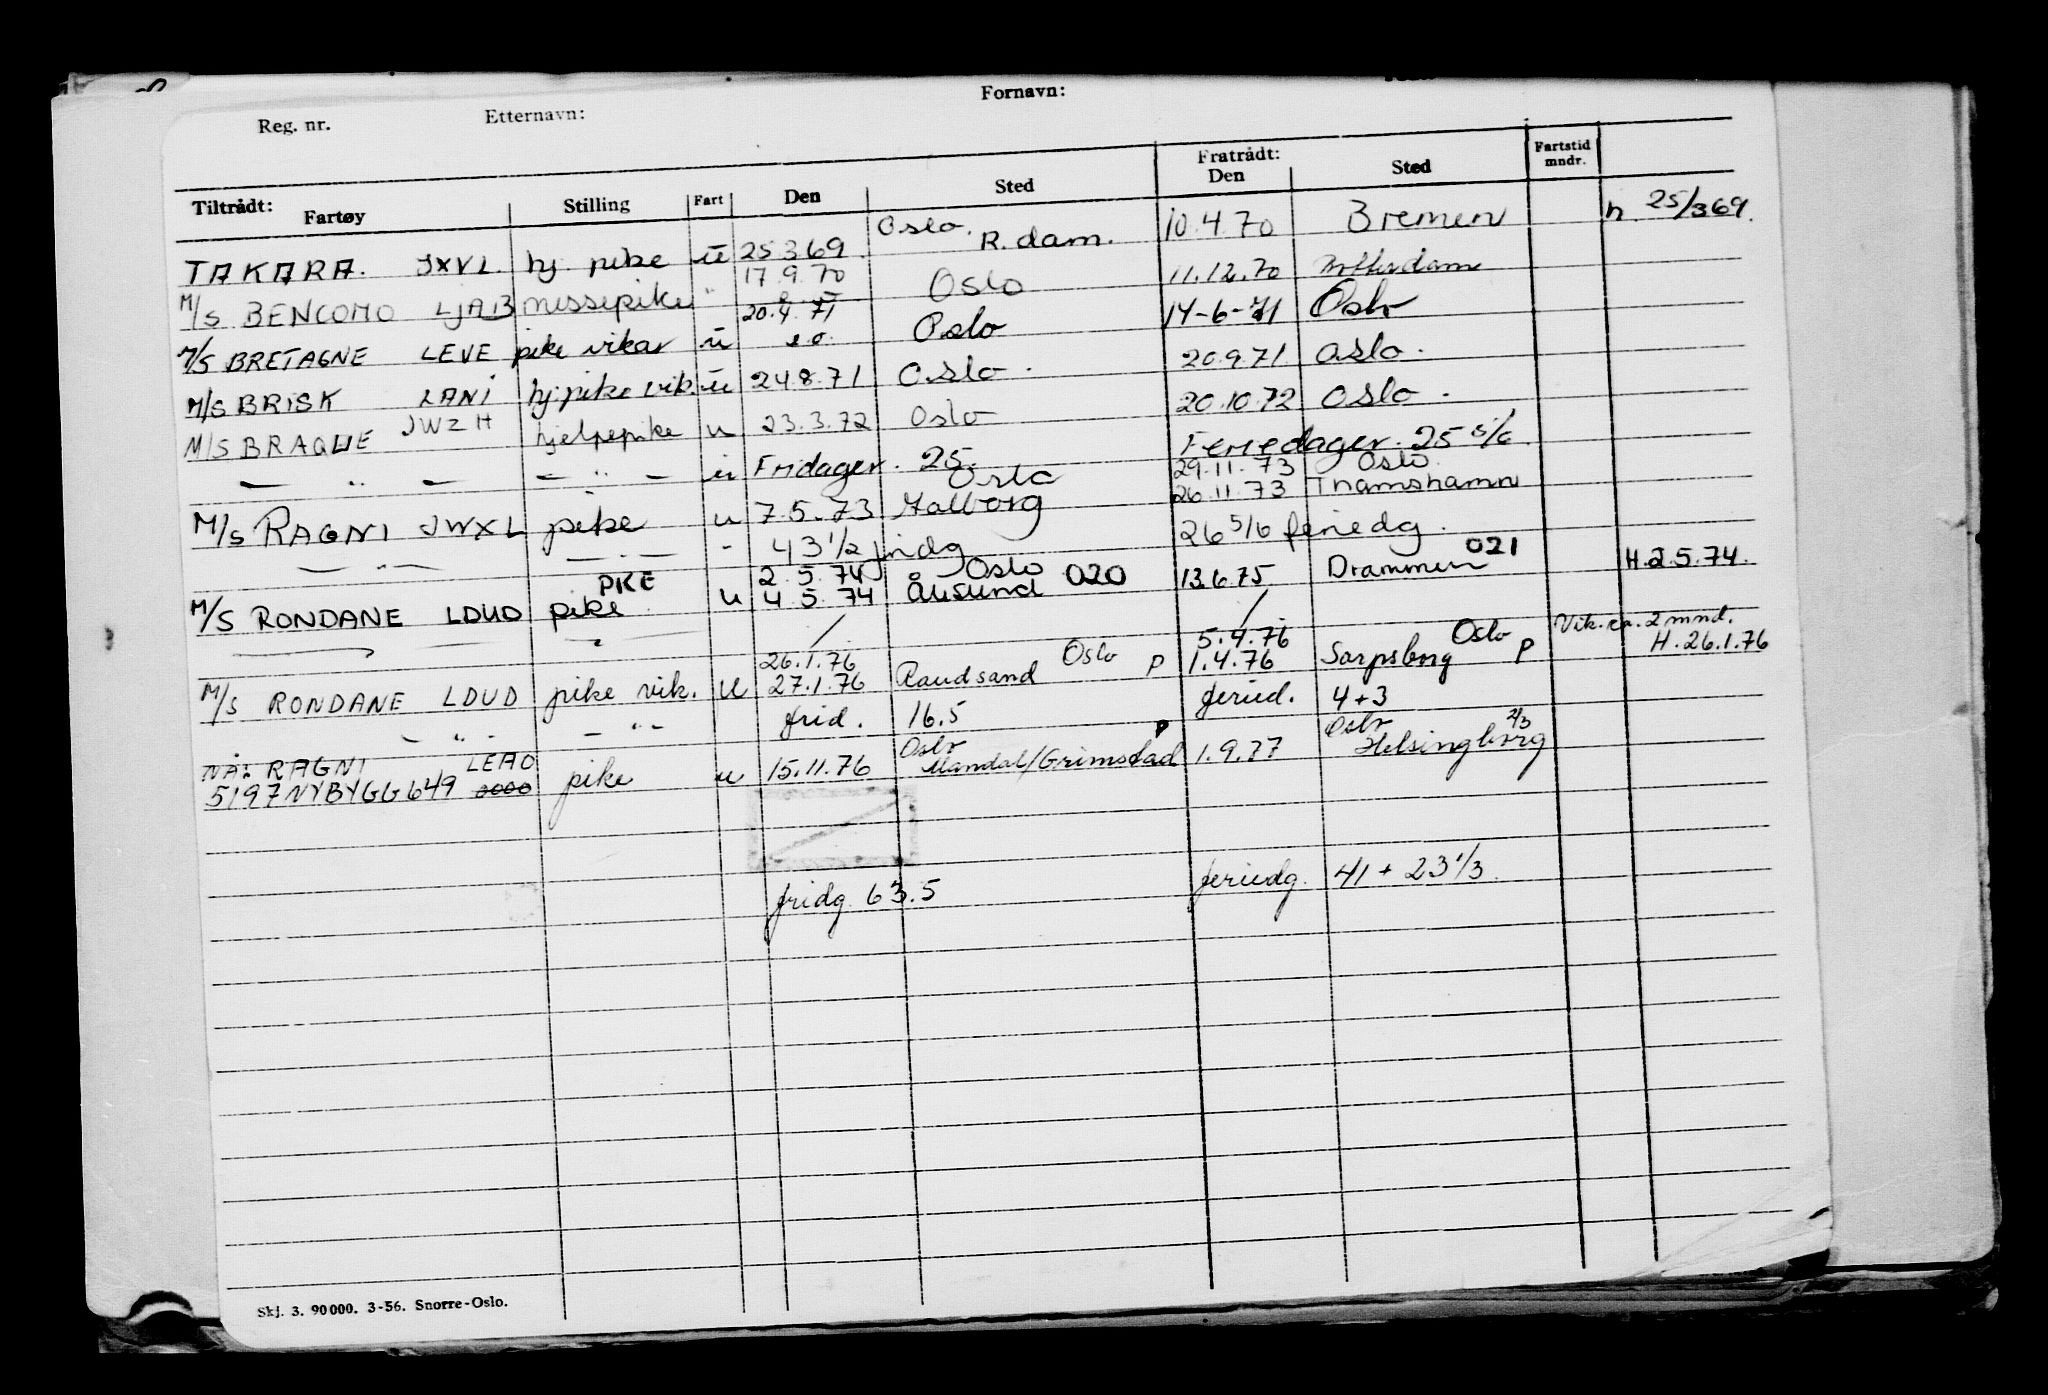 Reg. nr. Etternavn: Fornavn:
Tiltrådt: Fratrådt: Fartstid mndr.
Fartøy Stilling Fart Den Sted Den Sted
TAKARA. JXVL hj. pike u 25369. Oslo. R.dam. 10.4.70 Bremen h 25/369.
M/S BENCOMO LJAB messepike " 17.9.70 Oslo 11.12.70 Rotterdam
M/S BRETAGNE LEVE pike vikar u 20.4.71 Oslo 14-6-71 Oslo
M/S BRISK LANI hj.pike vik. u 24.8.71 Oslo. 20.9.71 Oslo.
M/S BRAQUE JWZH hjelpepike u 23.3.72 Oslo 20.10.72 Oslo.
— " — — " — u Fridager. 25. Feriedager. 25 5/6
Oslo 29.11.73 Oslo
M/S RAGNI JWXL pike u 7.5.73 Aalborg 26.11.73 Thamshamn
— " — — " — - 43 1/2 fridg 26 5/6 feriedg.
PKE 2.5.74 Oslo 020 021
M/S RONDANE LDUD pike u 4.5.74 Ålesund 13.6.75 Drammen H.2.5.74.
— " — " / /
26.1.76 Oslo 5.4.76 Oslo Vik. ca. 2 mnd.
M/S RONDANE LDUD pike vik. u 27.1.76 Raudsand P 1.4.76 Sarpsborg P H.26.1.76
— " - — " - frid. 16.5 feried. 4+3
LEAO Oslo P Oslo 2/3
NÅ: RAGNI pike u 15.11.76 Mandal/Grimstad 1.9.77 Helsingborg
5197 NYBYGG 649
fridg 63.5 feriedg. 41 + 23 1/3
Skj. 3. 90 000. 3-56. Snorre-Oslo.